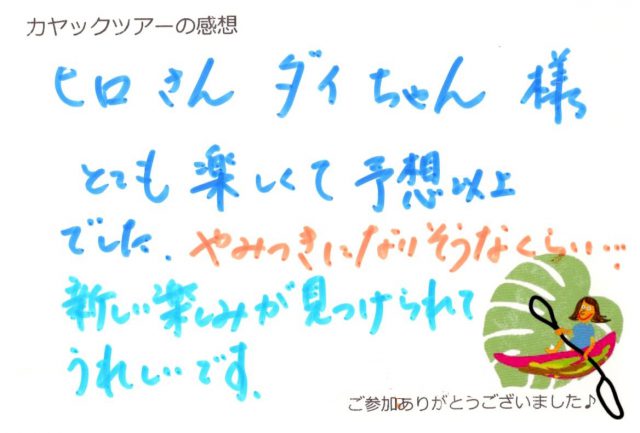 カヤックツアーの感想
ヒロさん ダイちゃん 様
とても楽しくて予想以上
でした。やみつきになりそうなくらい…
新しい楽しみが見つけられて
うれしいです。
ご参加ありがとうございました♪